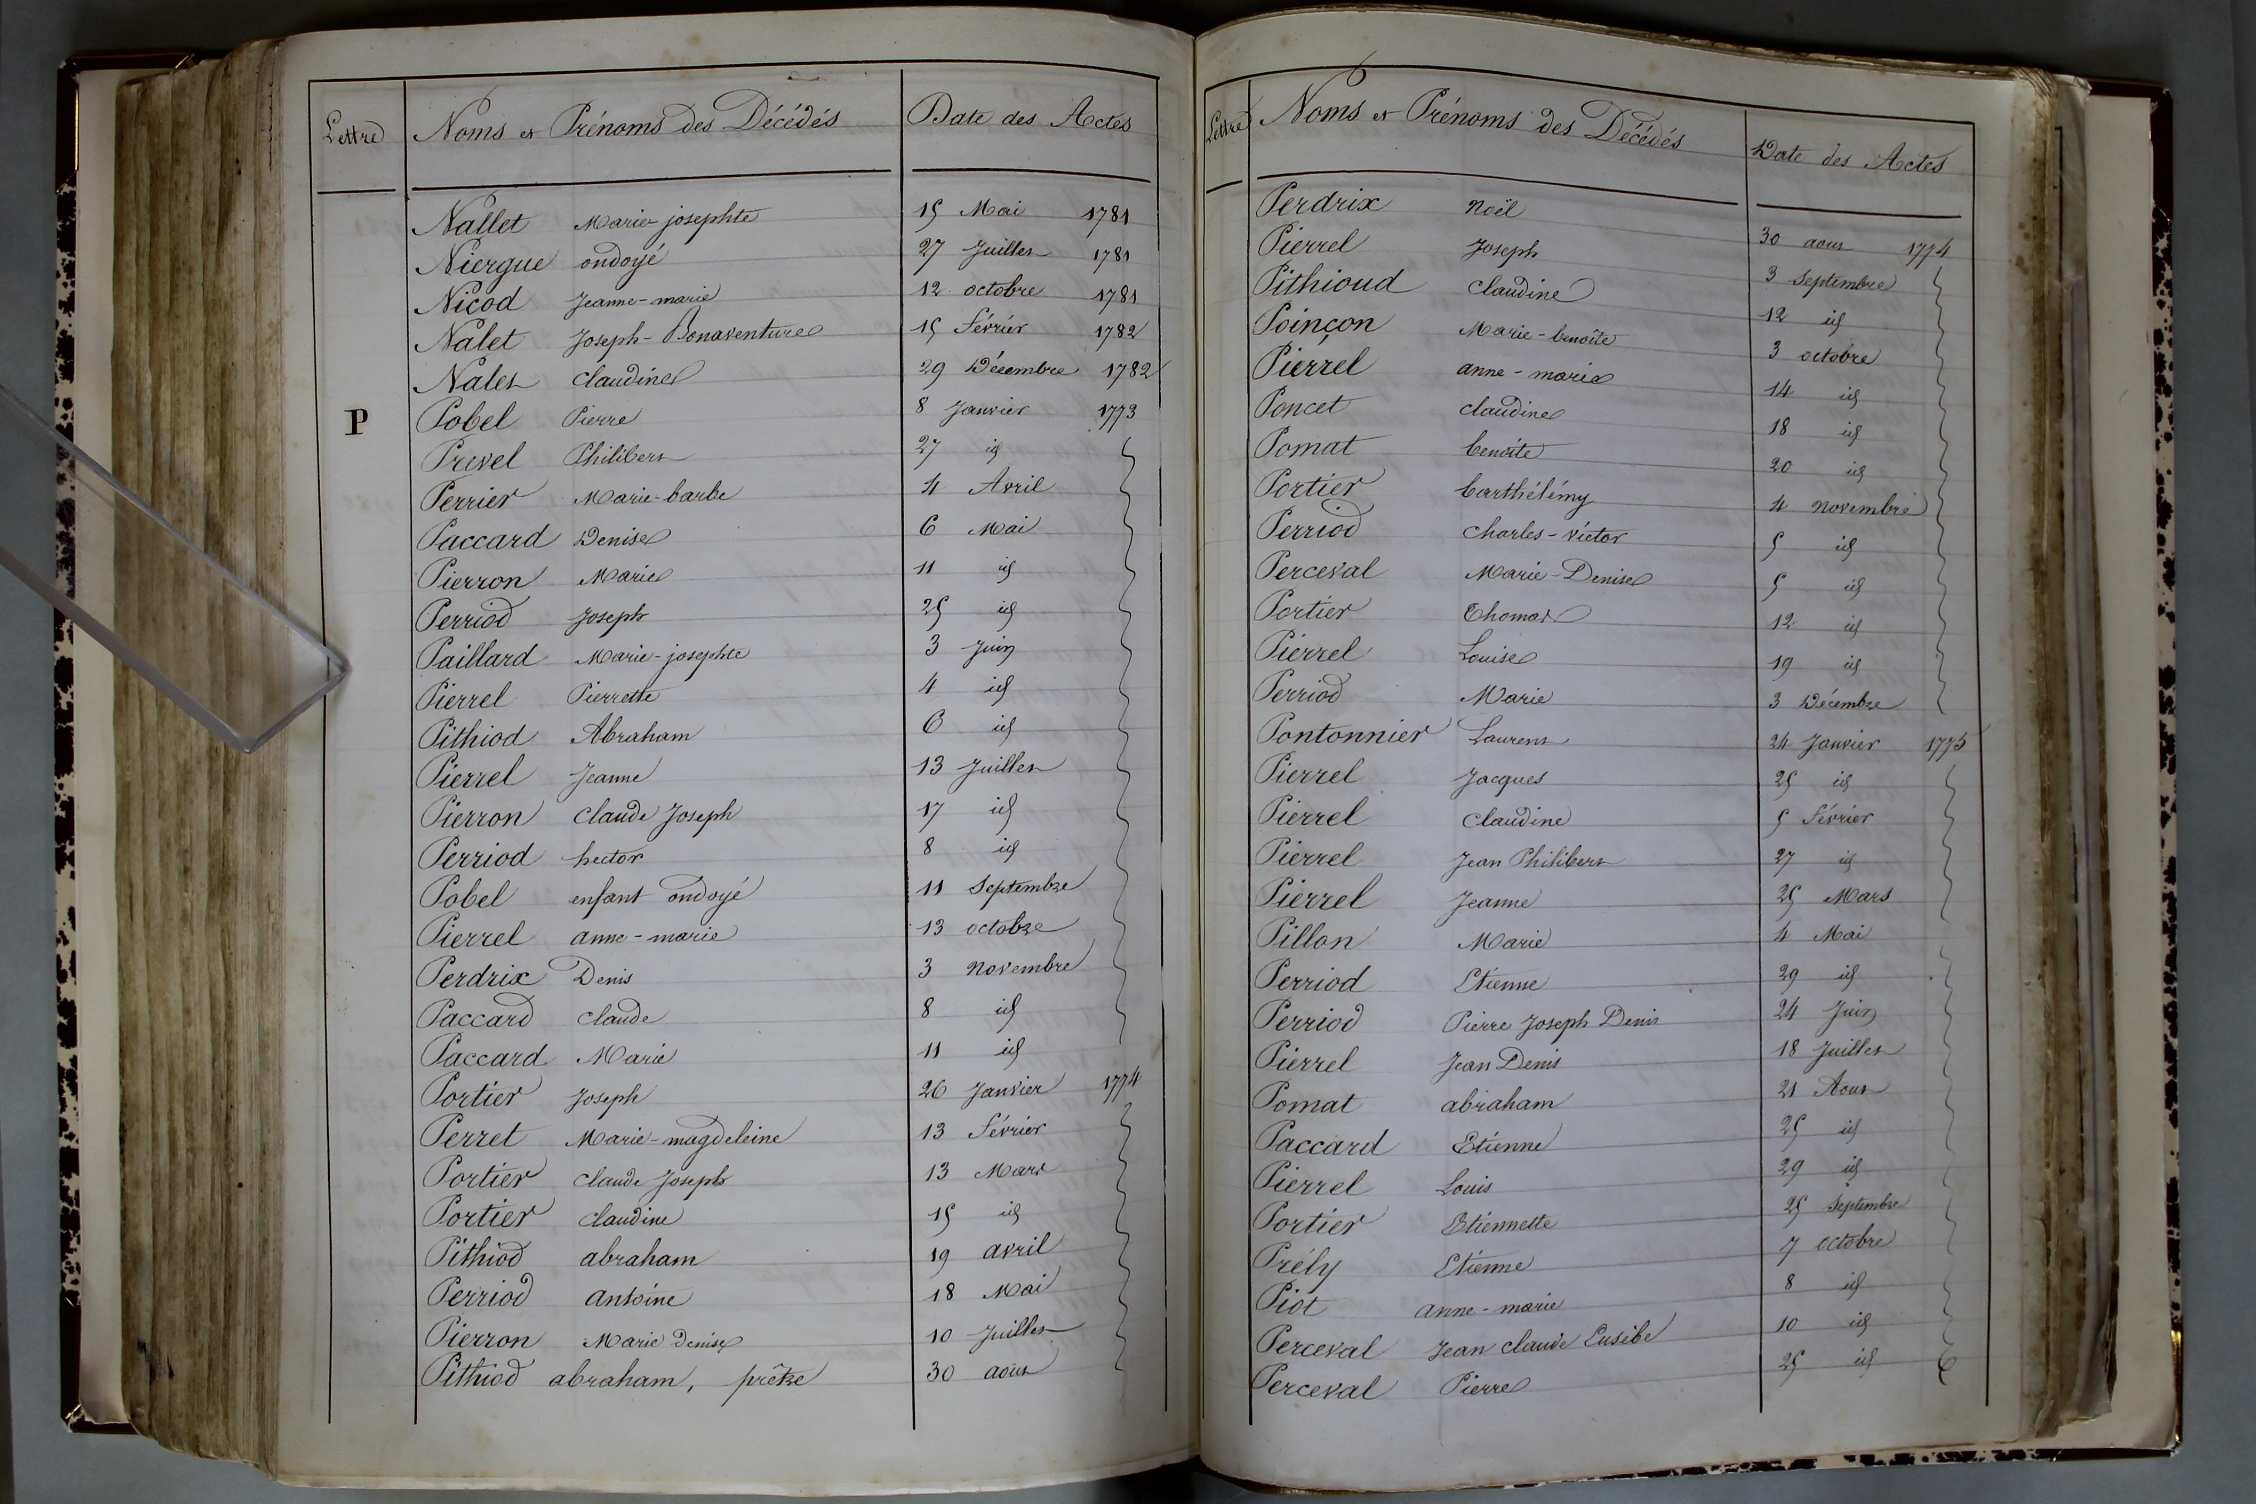 Lettre Noms et Prénoms des Décédés Date des Actes
Nallet Marie josephte 15 Mai 1781
Niergue ondoyé 27 Juillet 1781
Nicod Jeanne-marie 12 octobre 1781
Nalet Joseph-Bonaventure 15 Février 1782
Nalet claudine 29 Décembre 1782
P Pobel Pierre 8 Janvier 1773
Prevel Philibert 27 id
Perrier Marie-barbe 4 Avril
Paccard Denise 6 Mai
Pierron Marie 11 id
Perriod Joseph 25 id
Paillard Marie-josephte 3 Juin
Pierrel Pierrette 4 id
Pithiod Abraham 6 id
Pierrel Jeanne 13 Juillet
Pierron claude Joseph 17 id
Perriod hector 8 id
Pobel enfant ondoyé 11 Septembre
Pierrel anne-marie 13 octobre
Perdrix Denis 3 novembre
Paccard claude 8 id
Paccard Marie 11 id
Portier Joseph 26 Janvier 1774
Perret Marie-magdeleine 13 Février
Portier claude Joseph 13 Mars
Portier claudine 15 id
Pithiod abraham 19 avril
Perriod antoine 18 Mai
Pierron Marie Denise 10 Juillet
Pithiod abraham, prêtre 30 aout
Lettre Noms et Prénoms des Décédés Date des Actes
Perdrix Noël 30 aout 1774
Pierrel Joseph 3 Septembre
Pithioud claudine 12 id
Poinçon Marie-benoîte 3 octobre
Pierrel anne-marie 14 id
Poncet claudine 18 id
Pomat benoîte 20 id
Portier barthélémy 4 novembre
Perriod charles-victor 5 id
Perceval Marie-Denise 5 id
Portier Thomas 12 id
Pierrel Louise 19 id
Perriod Marie 3 Décembre
Pontonnier Laurent 24 Janvier 1775
Pierrel Jacques 25 id
Pierrel claudine 5 Février
Pierrel Jean Philibert 27 id
Pierrel Jeanne 25 Mars
Pillon Marie 4 Mai
Perriod Etienne 29 id
Perriod Pierre Joseph Denis 24 Juin
Pierrel Jean Denis 18 Juillet
Pomat abraham 21 Aout
Paccard Etienne 25 id
Pierrel Louis 29 id
Portier Etiennette 25 Septembre
Prély Etienne 7 octobre
Piot anne-marie 8 id
Perceval Jean claude Eusèbe 10 id
Perceval Pierre 25 id